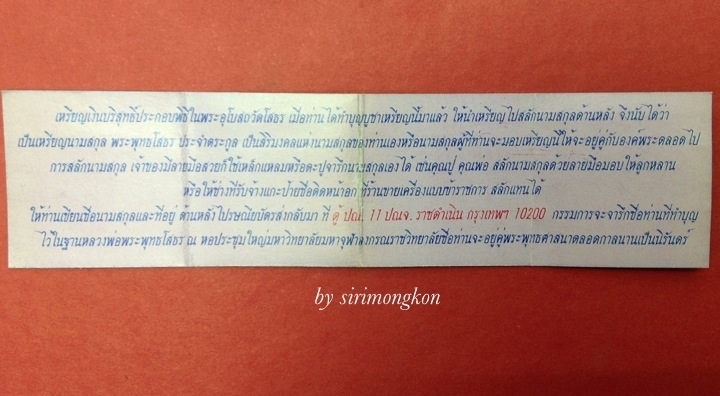 เหรียญเงินบริสุทธิ์ประกอบพิธีในพระอุโบสถวัดโสธร เมื่อท่านได้ทำบุญบูชาเหรียญนี้มาแล้ว ให้นำเหรียญไปสลักนามสกุลด้านหลัง จึงนับได้ว่า
เป็นเหรียญนามสกุล พระพุทธโสธร ประจำตระกูล เป็นสิริมงคลแห่งนามสกุลของท่านเองหรือนามสกุลผู้ที่ท่านจะมอบเหรียญนี้ให้จะอยู่คู่กับองค์พระตลอดไป
การสลักนามสกุล เจ้าของมีลายมือสวยก็ใช้เหล็กแหลมหรือตะปูจารึกนามสกุลเองได้ เช่นคุณปู่ คุณพ่อ สลักนามสกุลด้วยลายมือมอบให้ลูกหลาน
หรือให้ช่างที่รับจ้างแกะป้ายชื่อติดหน้าอก ที่ร้านขายเครื่องแบบข้าราชการ สลักแทนได้
ให้ท่านเขียนชื่อนามสกุลและที่อยู่ ด้านหลังไปรษณียบัตรส่งกลับมา ที่ ตู้ ปณ. 11 ปณจ. ราชดำเนิน กรุงเทพฯ 10200 กรรมการจะจารึกชื่อท่านที่ทำบุญ
ไว้ในฐานหลวงพ่อพระพุทธโสธร ณ หอประชุมใหญ่มหาวิทยาลัยมหาจุฬาลงกรณราชวิทยาลัยชื่อท่านจะอยู่คู่พระพุทธศาสนาตลอดกาลนานเป็นนิรันดร์
by sirimongkon